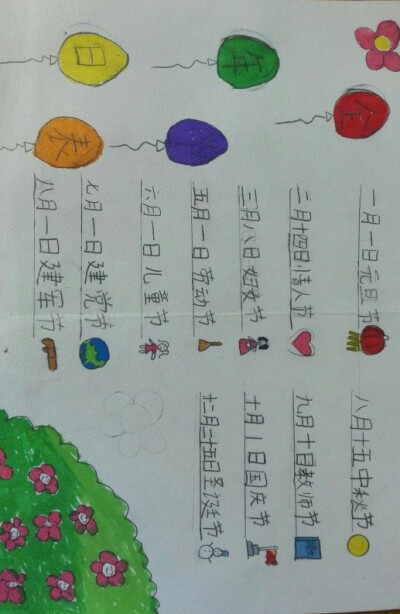 全
年
日
表
一月一日元旦节
二月十四日情人节
三月八日妇女节
五月一日劳动节
六月一日儿童节
七月一日建党节
八月一日建军节
八月十五中秋节
九月十日教师节
十月一日国庆节
十二月二十五日圣诞节